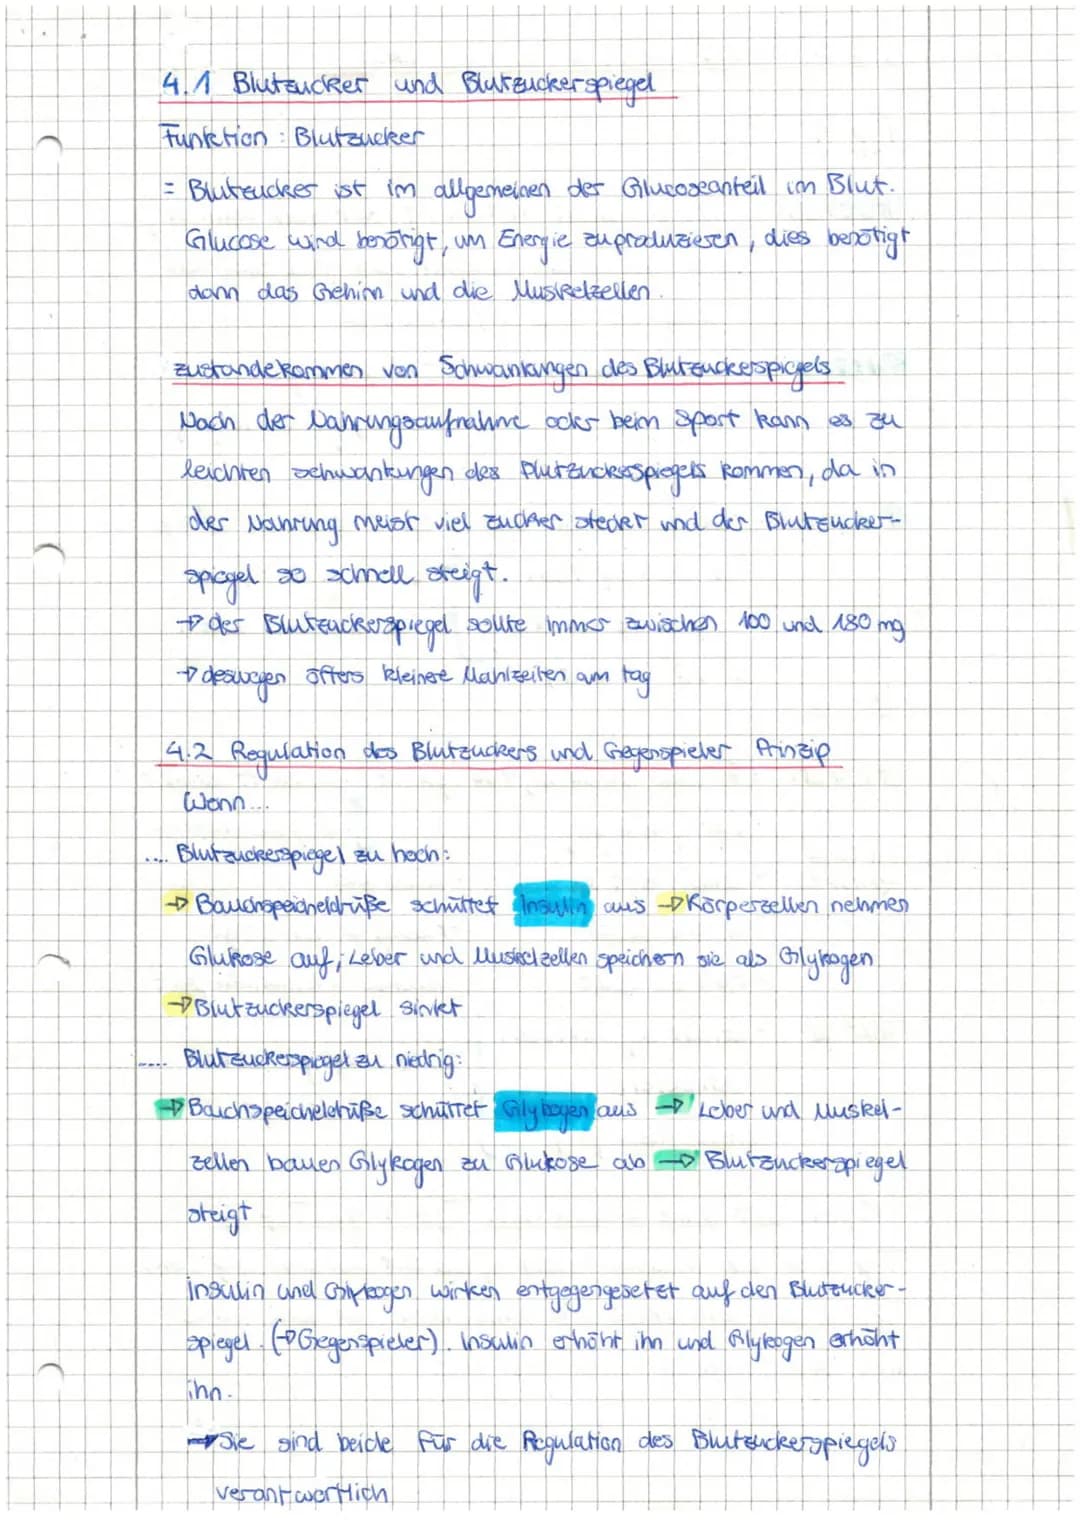 4.1 Blutzucker und Blutzuckerspiegel
Funktion : Blutzucker
= Blutzucker ist im allgemeinen der Glucoseanteil im Blut.
Glucose wird benötigt, um Energie zuproduzieren, dies benötigt
dann das Gehirn und die Muskelzellen.
zustandekommen von Schwankungen des Blutzuckerspiegels
Nach der Nahrungsaufnahme oder beim Sport kann es zu
leichten schwankungen des Blutzuckerspiegels kommen, da in
der Nahrung meist viel zucker steckt und der Blutzucker-
spiegel so schnell steigt.
→ der Blutzuckerspiegel sollte immer zwischen 100 und 180 mg
→ deswegen öfters kleinere Mahlzeiten am tag
4.2 Regulation des Blutzuckers und Gegenspieler Prinzip
Wenn...
.... Blutzuckerspiegel zu hoch:
→ Bauchspeicheldrüße schüttet Insulin aus → Körperzellen nehmen
Glukose auf; Leber und Muskelzellen speichern sie als Glykogen
→ Blutzuckerspiegel sinkt
.... Blutzuckerspiegel zu niedrig:
→ Bauchspeicheldrüße schüttet Glykogen aus → Leber und Muskel-
zellen bauen Glykogen zu Glukose ab → Blutzuckerspiegel
steigt
Insulin und Glykogen wirken entgegengesetzt auf den Blutzucker-
spiegel. (→ Gegenspieler). Insulin erhöht ihn und Glykogen erhöht
ihn.
→ Sie sind beide für die Regulation des Blutzuckerspiegels
verantwortlich